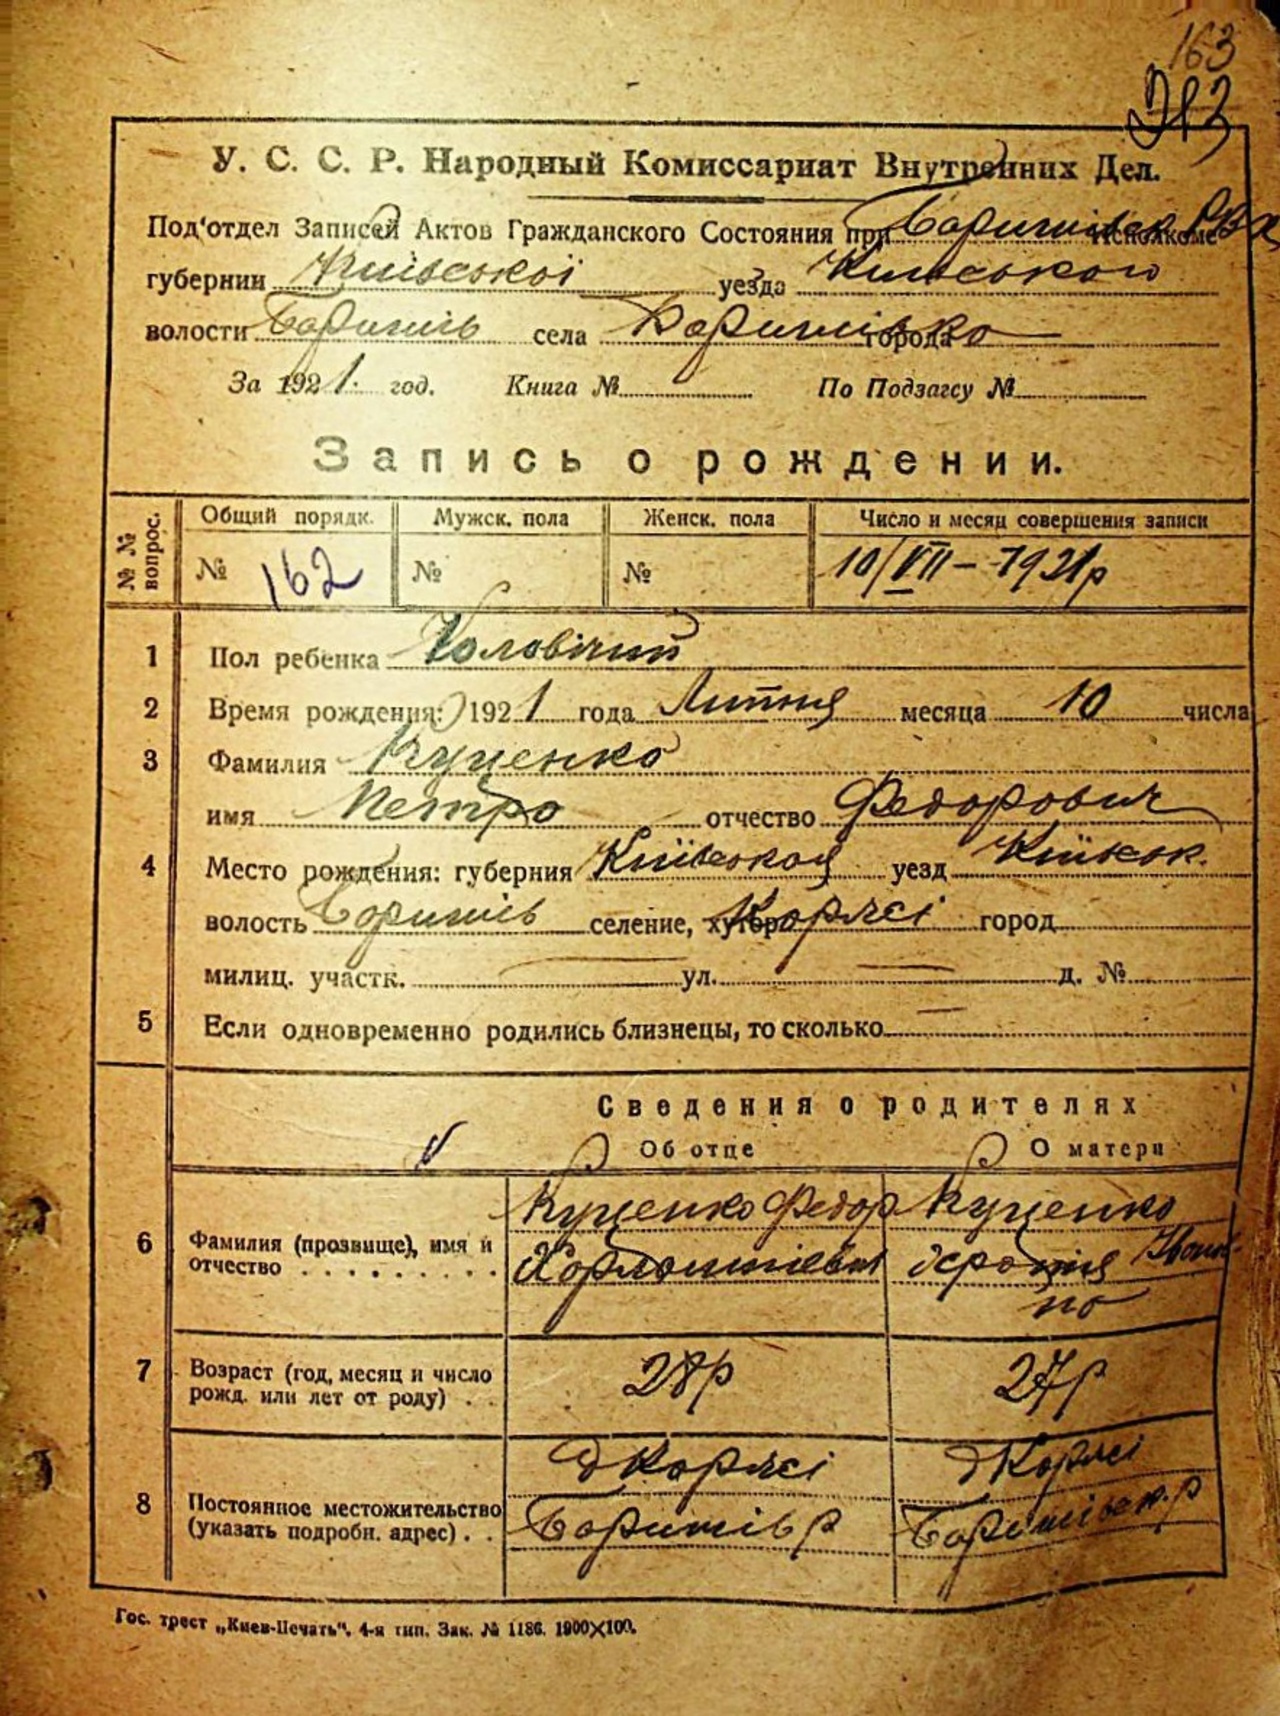 163
213
У. С. С. Р. Народный Комиссариат Внутренних Дел.
Под'отдел Записей Актов Гражданского Состояния при Исполкоме
губернии Київської уезда Київського
волости Баришів села Баришівка города
За 1921. год. Книга № По Подзагсу №
Запись о рождении.
№ № вопрос. Общий порядк. Мужск. пола Женск. пола Число и месяц совершения записи
№ 162 № № 10/VII – 1921р
1 Пол ребенка Чоловічий
2 Время рождения: 1921 года Липня месяца 10 числа
3 Фамилия Куценко
имя Петро отчество Федорович
4 Место рождения: губерния Київська уезд Київськ.
волость Баришів селение, хутор Коржі город
милиц. участк. — ул. — д. №
5 Если одновременно родились близнецы, то сколько —
Сведения о родителях
Об отце О матери
6 Фамилия (прозвище), имя и Куценко Федор Куценко
отчество
7 Возраст (год, месяц и число 28р 27р
рожд. или лет от роду)
8 Постоянное местожительство Коржі Коржі
(указать подробн. адрес) Баришів р Баришівськ. р
Гос. трест „Киев-Печать", 4-я тип. Зак. № 1186. 1900×100.